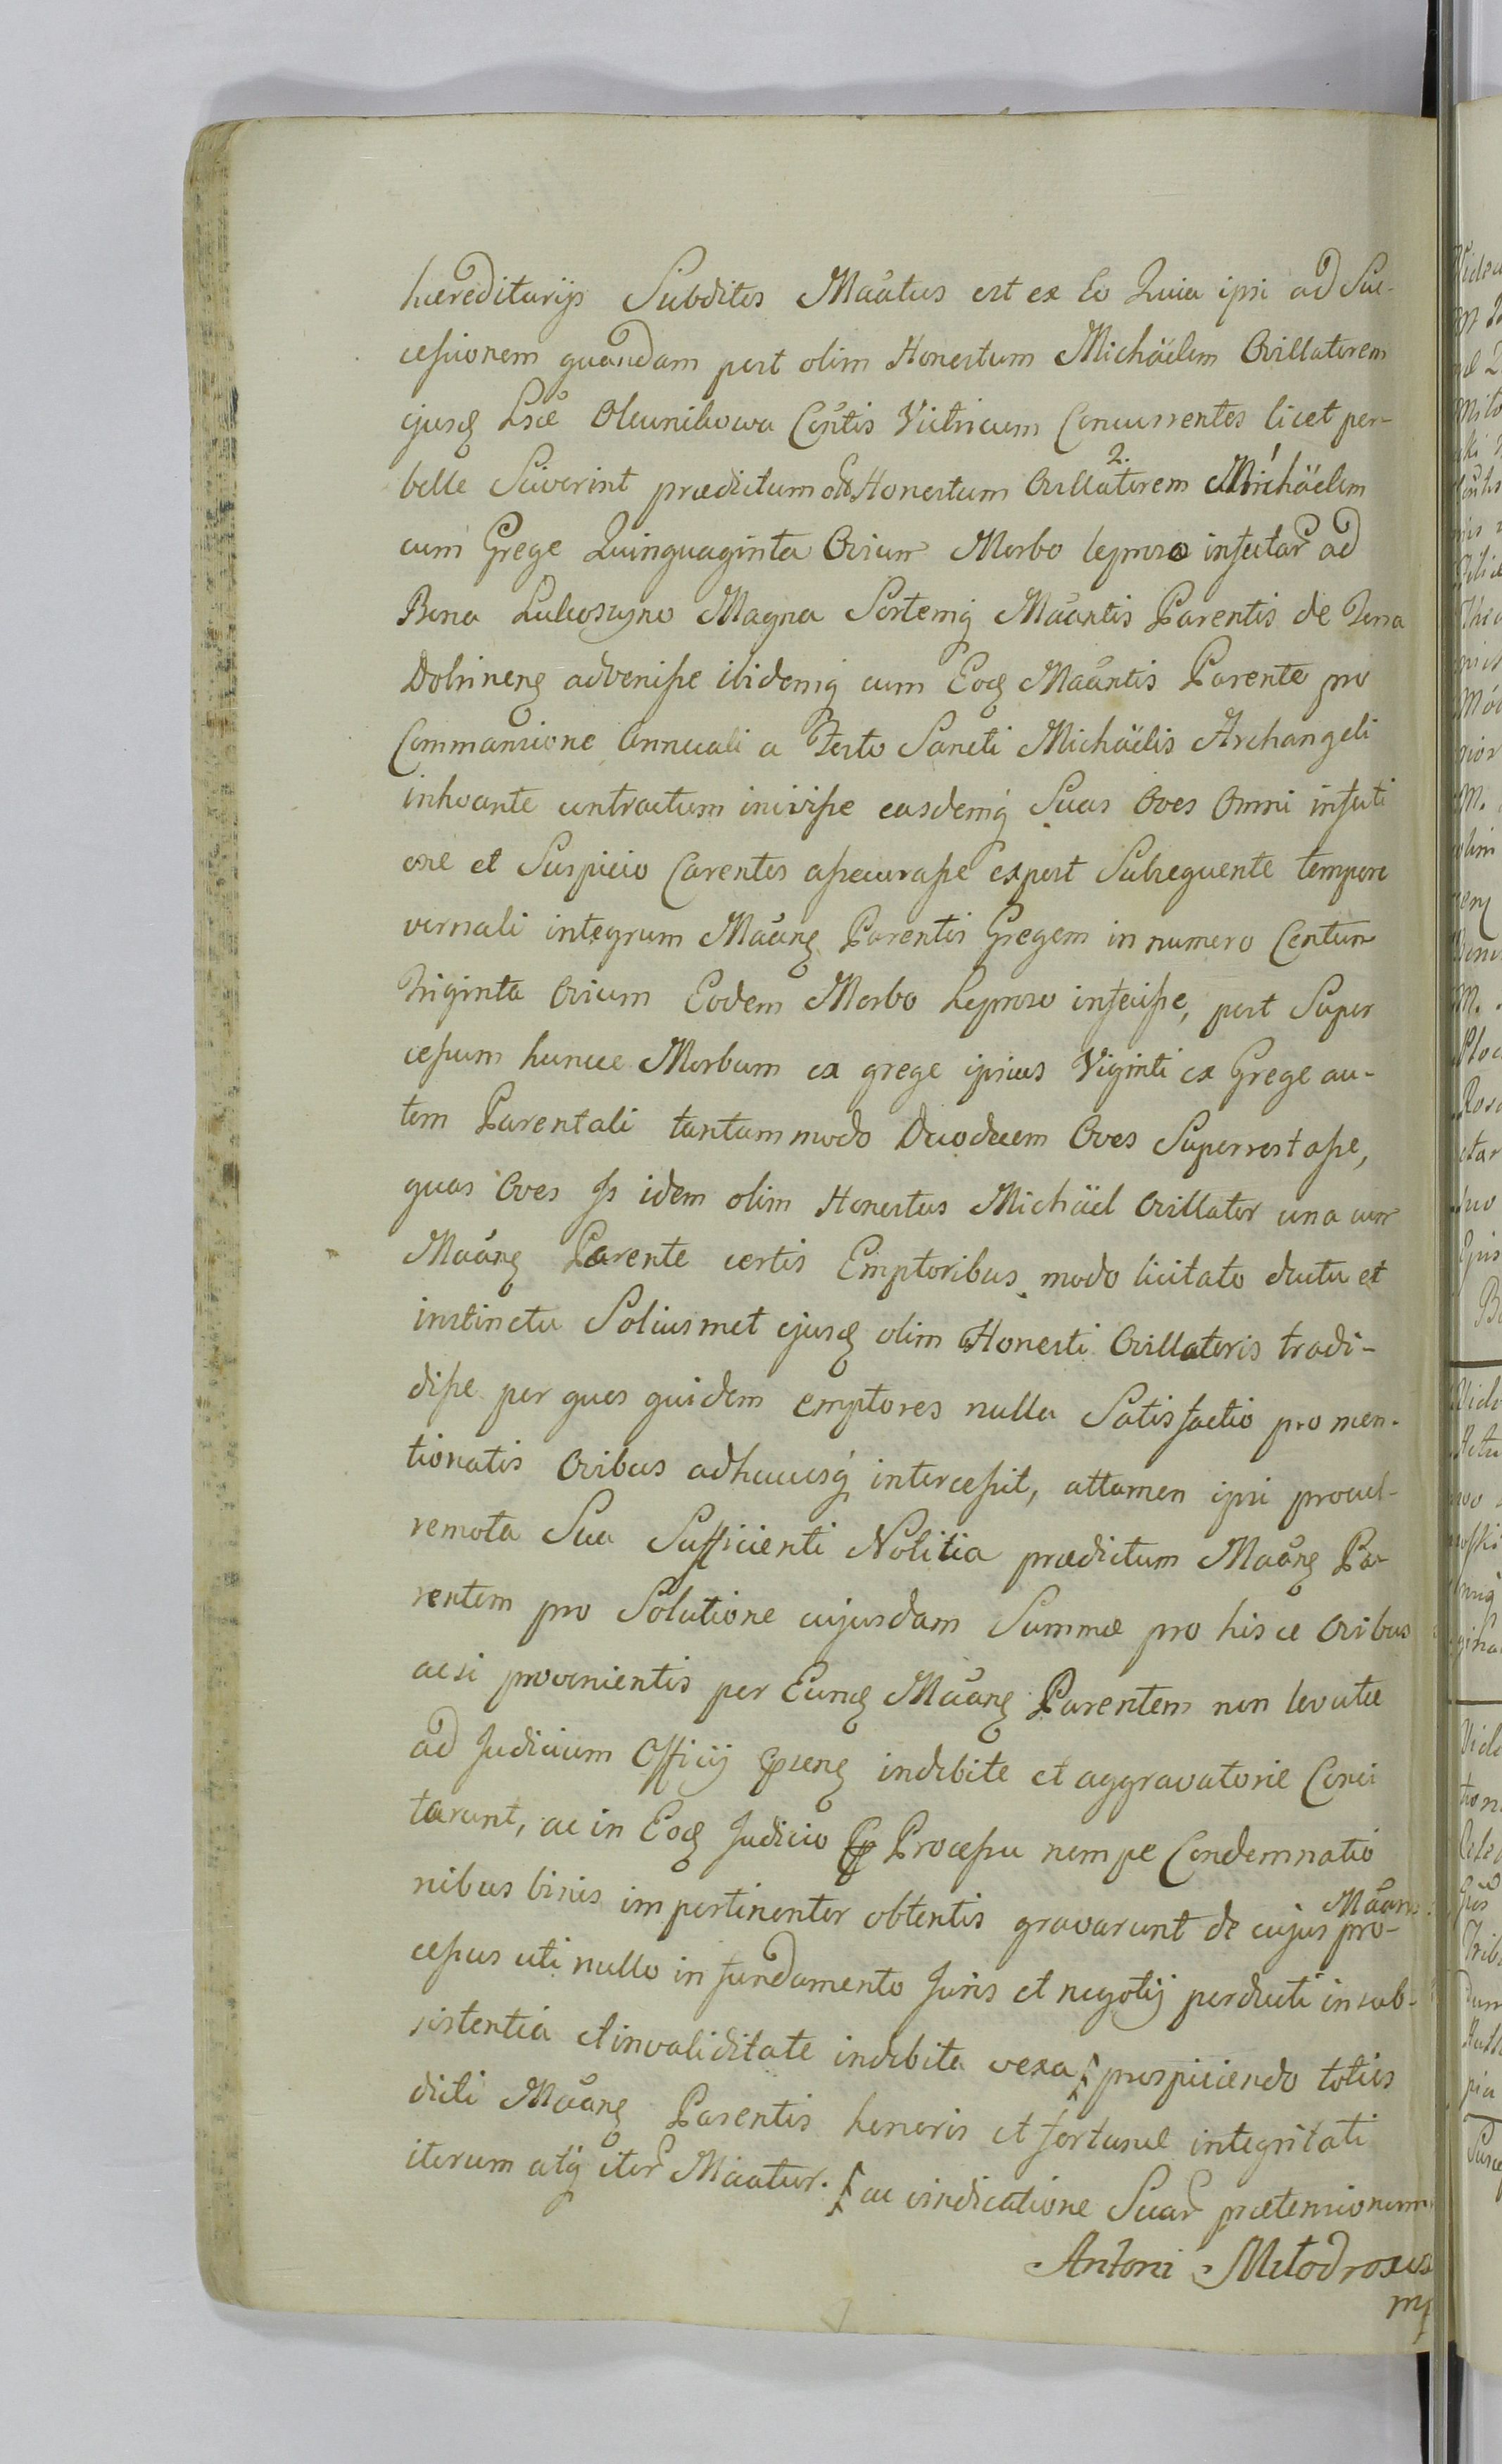 hæreditarijs Subditos Maātus est ex Eo Quia ipsi ad Suc-
cessionem quandam post olim Honestum Michäelem Ovillatorem
ejusđ Lsæ Oleunikowa Contis Victricum Concurrentes licet per-
belle Sciverint prædictum Honestum Ovillatorem 2. Michäelem
cum Grege Quinquaginta Ovium Morbo leproso infectar ad
Bona Lukoszyno Magna Sortemq Maāntis Parentis de Terra
Dobrinens advenisse ibidemq cum Eodđ Maāntis Parente pro
Commansione Annuali a Festo Sancti Michäelis Archangeli
inhoante contractum inivisse easdemq Suas Oves Omni infecti
one et Suspicio Carentes assecurasse expost Subsequente tempore
vernali integrum Maāng Parentis Gregem in numero Centum
Triginta Ovium Eodem Morbo Leproso infecisse, post Super
cessum huncce Morbum ex grege ipsius Viginti ex Grege au-
tem Parentali tantummodo Duodecem Oves Superrestasse,
quas Oves Is idem olim Honestus Michäel Ovillator una cum
Maāng Parente certis Emptoribus modo licitato ductu et
instinctu Soliusmet ejusđ olim Honesti Ovillatoris tradi-
disse per quos quidem emptores nulla Satisfactio pro men-
tionatis Ovibus adhucusq intercessit, attamen ipsi procul-
remota Sua Sufficienti Notitia prædictum Maāng Pa-
rentem pro Solutione cujusdam Summæ pro hisce Ovibus
acsi provenientis per Eunđ Maāng Parentem non levatæ
ad Judicium Officij indebite et aggravatorie Conci
tarunt, ac in Eodđ Judicio Processu nempe Condemnatio
nibus binis impertinenter obtentis gravarunt de cujus Maāns pro-
cessus uti nullo in fundamento Juris et negotij perducti insub-
sistentia et invaliditate indebita vexa prospiciendo toties
dicti Maāng Parentis honoris et fortunæ integritati
iterum atq iter Maatur. ac vindicatione Suar prætensionum
Antoni
mp